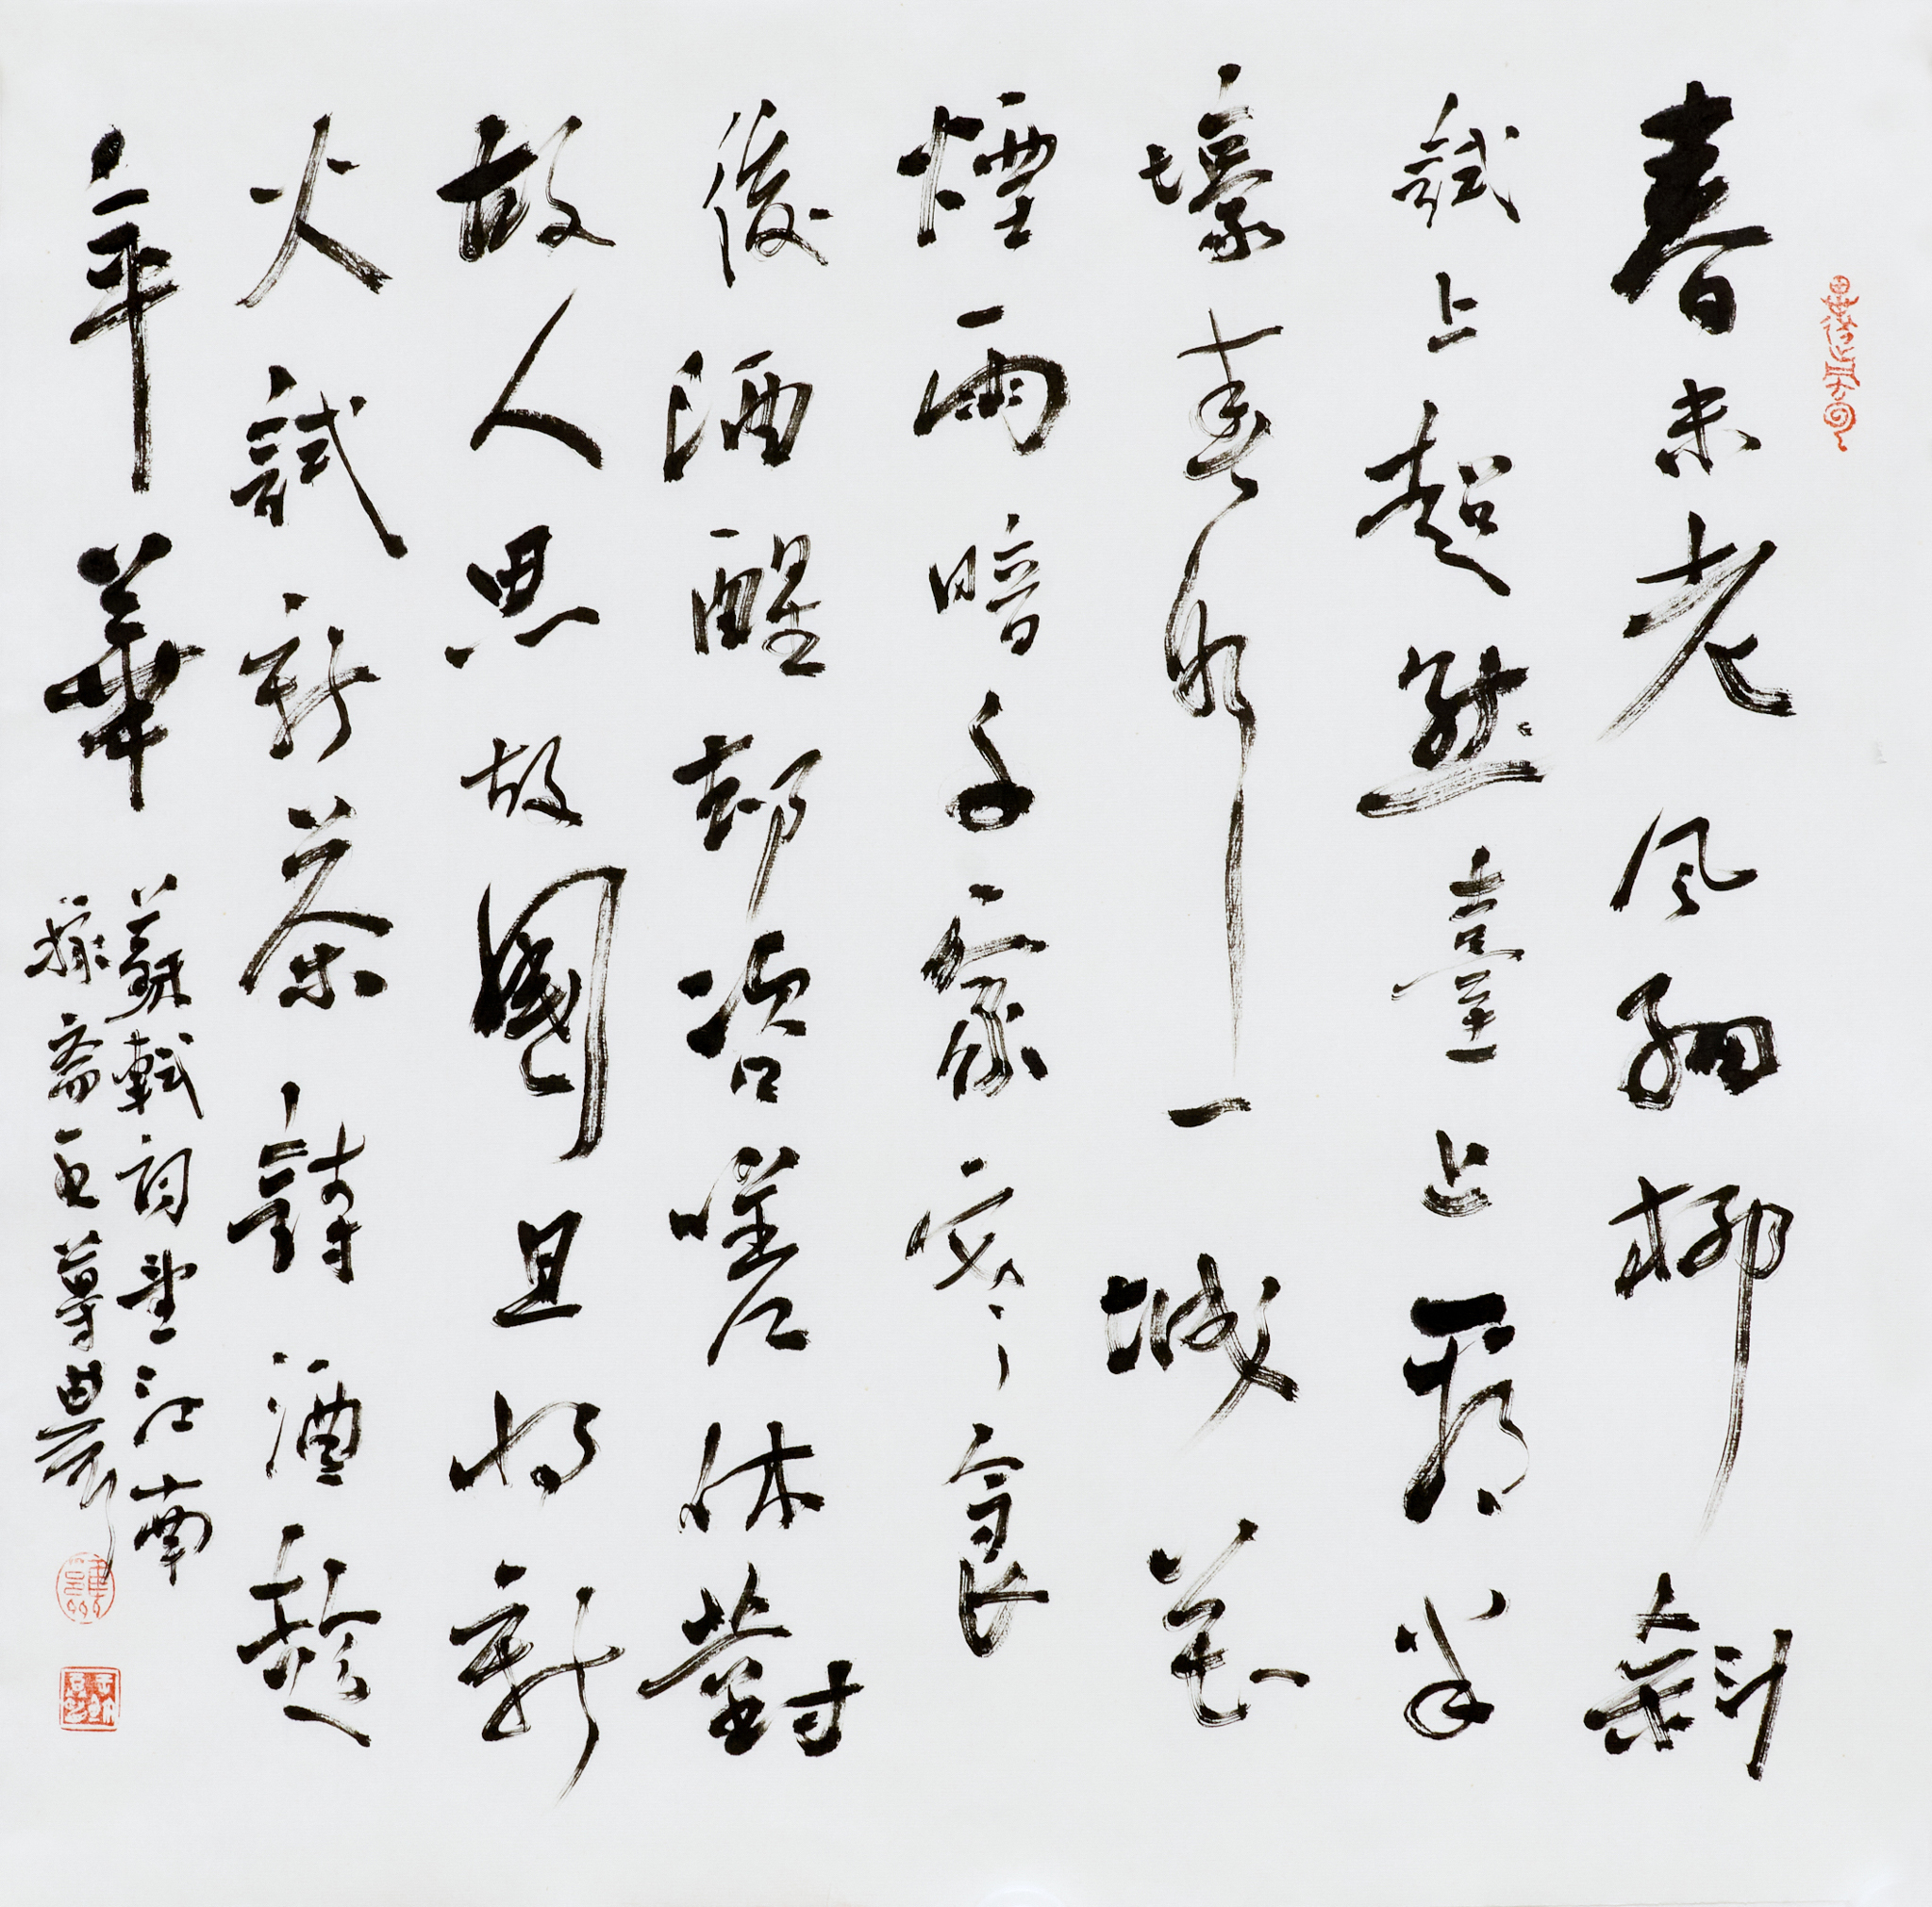 春未老风細柳斜
試上超然臺上看半
壕春水一城花
煙雨暗千家寒食
後酒醒却咨嗟休對
故人思故國且将新
火試新茶詩酒趁
年華
蘇軾詞望江南
齋主